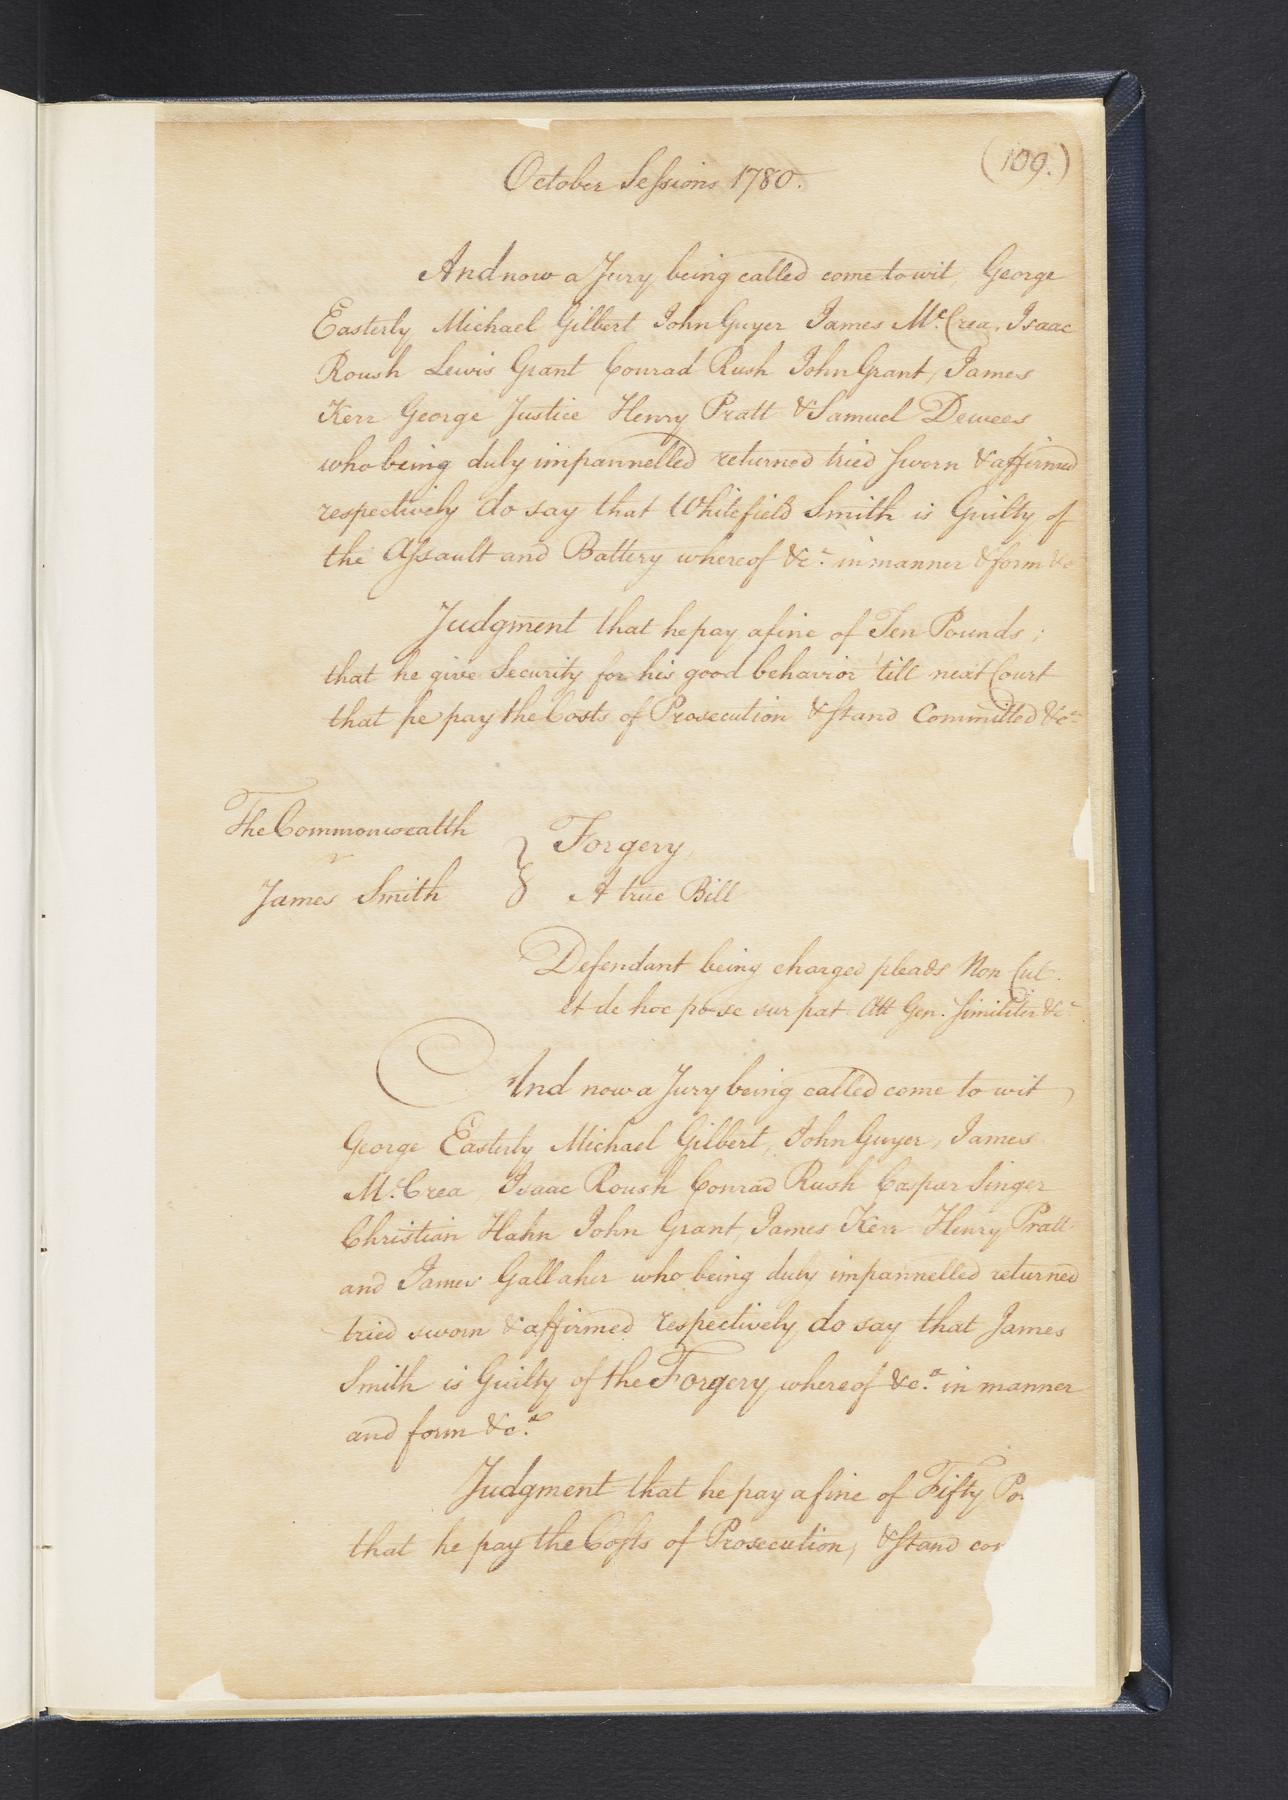 October Sessions 1780.
(109.)
And now a Jury being called come to wit, George
Easterly Michael Gilbert John Guyer James Mc. Crea, Isaac
Roush Lewis Grant Conrad Rush John Grant, James
Kerr George Justice Henry Pratt & Samuel Dewees
who being duly impannelled returned tried sworn & affirmed
respectively do say that Whitefield Smith is Guilty of
the Assault and Battery whereof &c. in manner & form &c
Judgment that he pay a fine of Ten Pounds;
that he give Security for his good behavior 'till next Court
that he pay the Costs of Prosecution & stand Committed &c
The Commonwealth
v
James Smith
Forgery
A true Bill
Defendant being charged pleads Non Cul.
et de hoc po se sur pat. Att Gen. Similiter &c
And now a Jury being called come to wit,
George Easterly Michael Gilbert, John Guyer, James
Mc. Crea, Isaac Roush Conrad Rush Caspar Singer
Christian Hahn John Grant, James Kerr Henry Pratt
and James Gallaher who being duly impannelled returned
tried sworn & affirmed respectively do say that James
Smith is Guilty of the Forgery whereof &c.a in manner
and form &c.a
Judgment that he pay a fine of Fifty Po
that he pay the Costs of Prosecution, & stand co